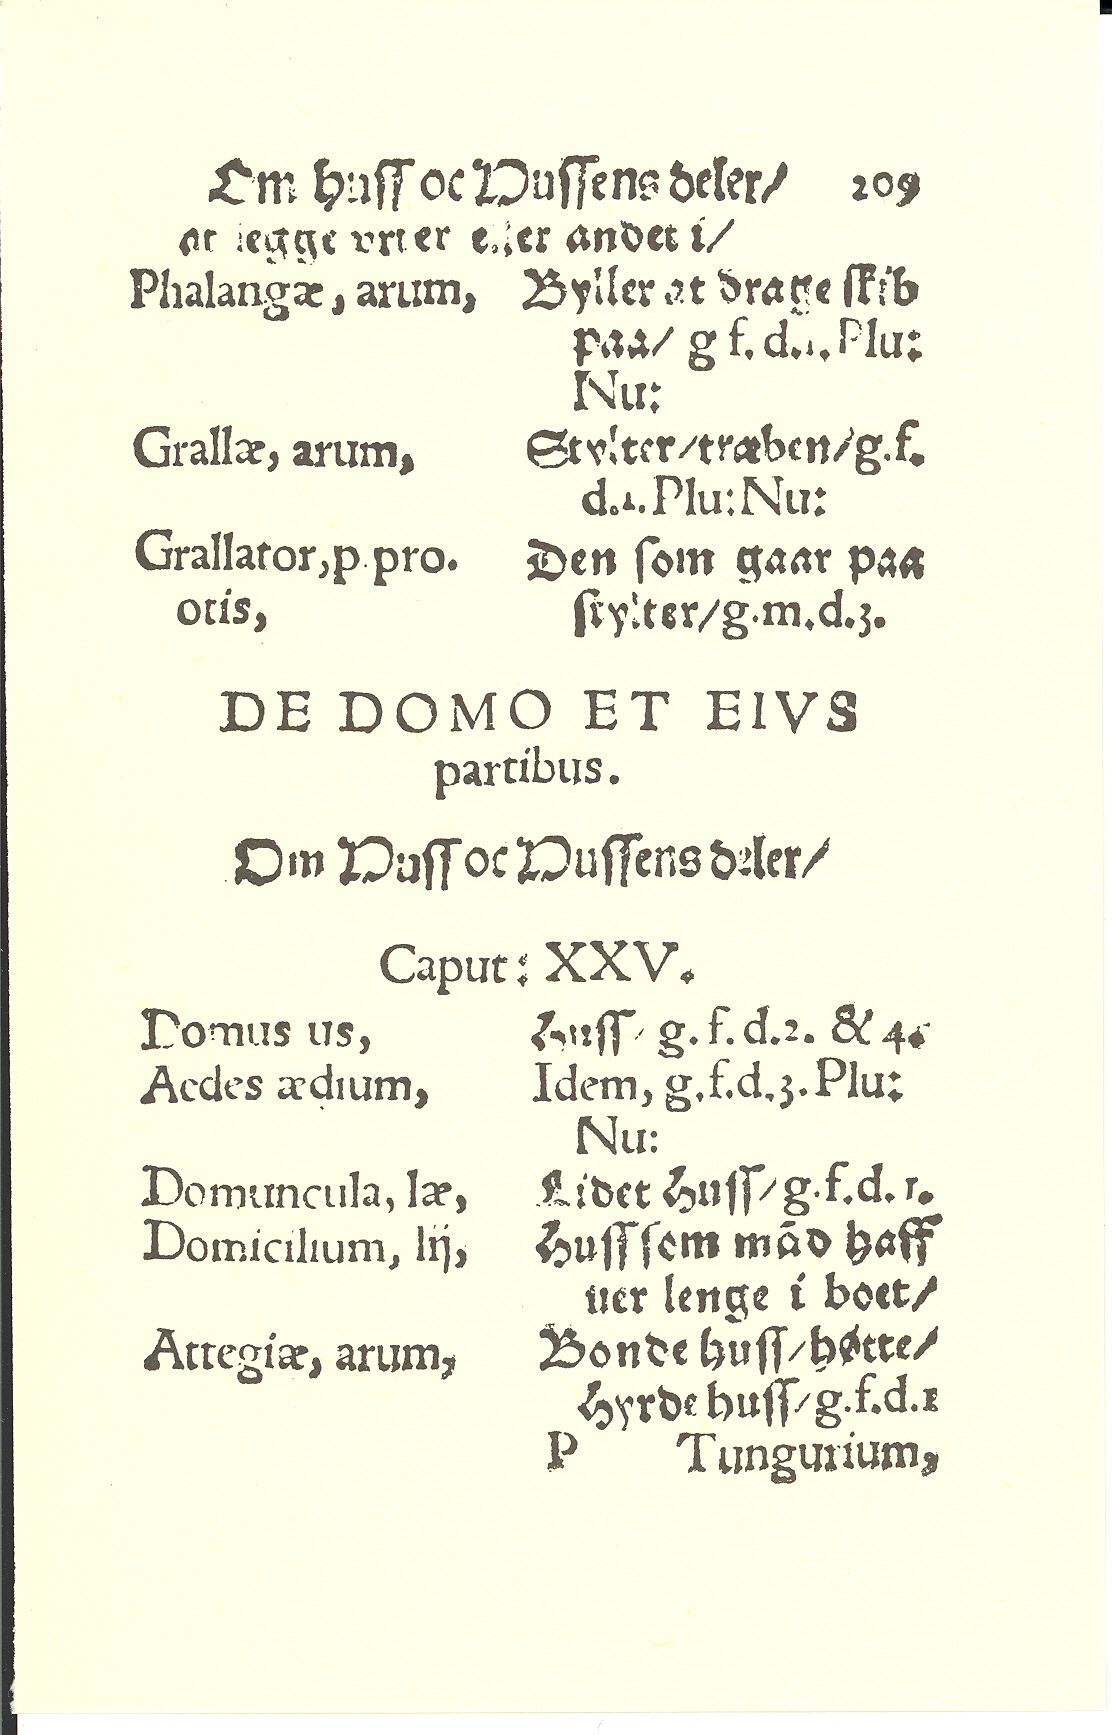 Om huſſ oc Huſſens deler/ 209
at legge vrter eller andet i/
Phalangæ, arum, Byller at drage ſkib
paa/ g f. d.1. Plu:
Nu:
Grallæ, arum, Stylter/træben/g.f.
d.1. Plu: Nu:
Grallator, p. pro. Den ſom gaar paa
otis, ſtylter/g.m.d.3.
DE DOMO ET EIVS
partibus.
Om Huſſ oc Huſſens deler/
Caput: XXV.
Domus us, Huſſ/ g. f. d.2. & 4.
Aedes ædium, Idem, g.f.d.3. Plu:
Nu:
Domuncula, læ, Lidet Huſſ/g.f.d. 1.
Domicilium, lij, Huſſ ſom mãd haff
uer lenge i boet/
Attegiæ, arum, Bonde huſſ/høtte/
Hyrde huſſ/g.f.d.1
P Tungurium,